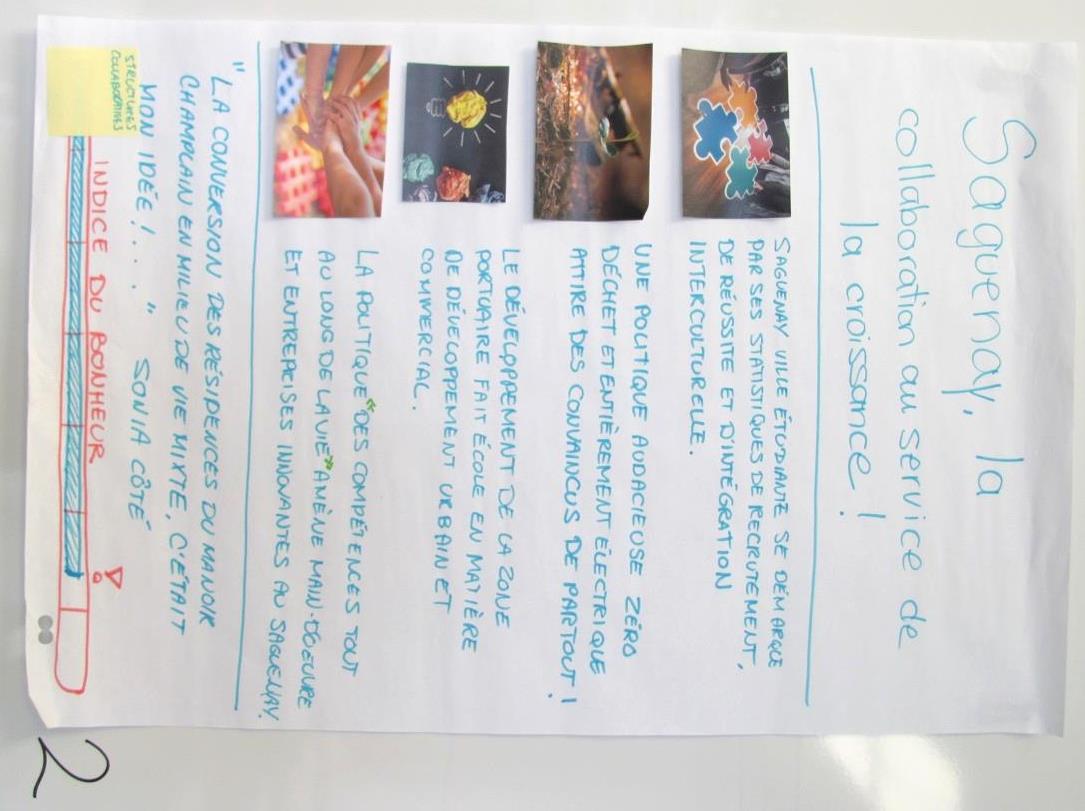 Saguenay, la
collaboration au service de
la croissance !
SAGUENAY VILLE ÉTUDIANTE SE DÉMARQUE
PAR SES STATISTIQUES DE RECRUTEMENT,
DE RÉUSSITE ET D'INTÉGRATION
INTERCULTURELLE.
UNE POLITIQUE AUDACIEUSE ZÉRO
DÉCHET ET ENTIÈREMENT ÉLECTRIQUE
ATTIRE DES CONVAINCUS DE PARTOUT !
LE DÉVELOPPEMENT DE LA ZONE
PORTUAIRE FAIT ÉCOLE EN MATIÈRE
DE DÉVELOPPEMENT URBAIN ET
COMMERCIAL.
LA POLITIQUE « DES COMPÉTENCES TOUT
AU LONG DE LA VIE » AMÈNE MAIN-D'OEUVRE
ET ENTREPRISES INNOVANTES AU SAGUENAY.
" LA CONVERSION DES RÉSIDENCES DU MANOIR
CHAMPLAIN EN MILIEU DE VIE MIXTE, C'ÉTAIT
MON IDÉE ! . . . " SONIA CÔTÉ
STRUCTURES
COLLABORATIVES
INDICE DU BONHEUR
2